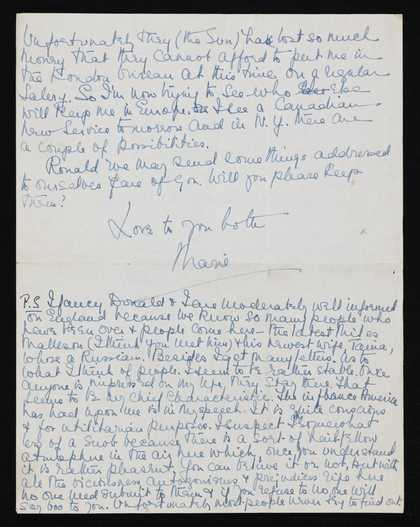 Unfortunately they (the Sun) has lost so much
money that they cannot afford to put me in
the London bureau at this time, on a regular
Salary. So I'm now trying to see who else
will keep me in Europe. I see a Canadian
News Service tomorrow and in N.Y. there are
a couple of possibilities.
Ronald we may send some things addressed
to ourselves care of you. Will you please keep
them?
Love to you both
Marie
P.S I fancy Donald & I are moderately well informed
on England because we know so many people who
have been over & people come here – the latest Miles
Malleson (I think you met him) & his newest wife,
whose a Russian. Besides I get many letters. As to
what I think of people. I seem to be rather stable. Once
anyone is impressed on my life, they stay there. That
seems to be my chief characteristic. The influence America
has had upon me is in my speech. It is quite conscious
& for utilitarian purposes. I suspect I'm somewhat
of a snob because there is a sort of
atmosphere in the air here which, once you understand
it is rather pleasant, you can believe it or not, but with
all the viciousness antagonisms & prejudices life here
no one need submit to them & if you refuse to no one will
say boo to you. Unfortunately most people when try to find out